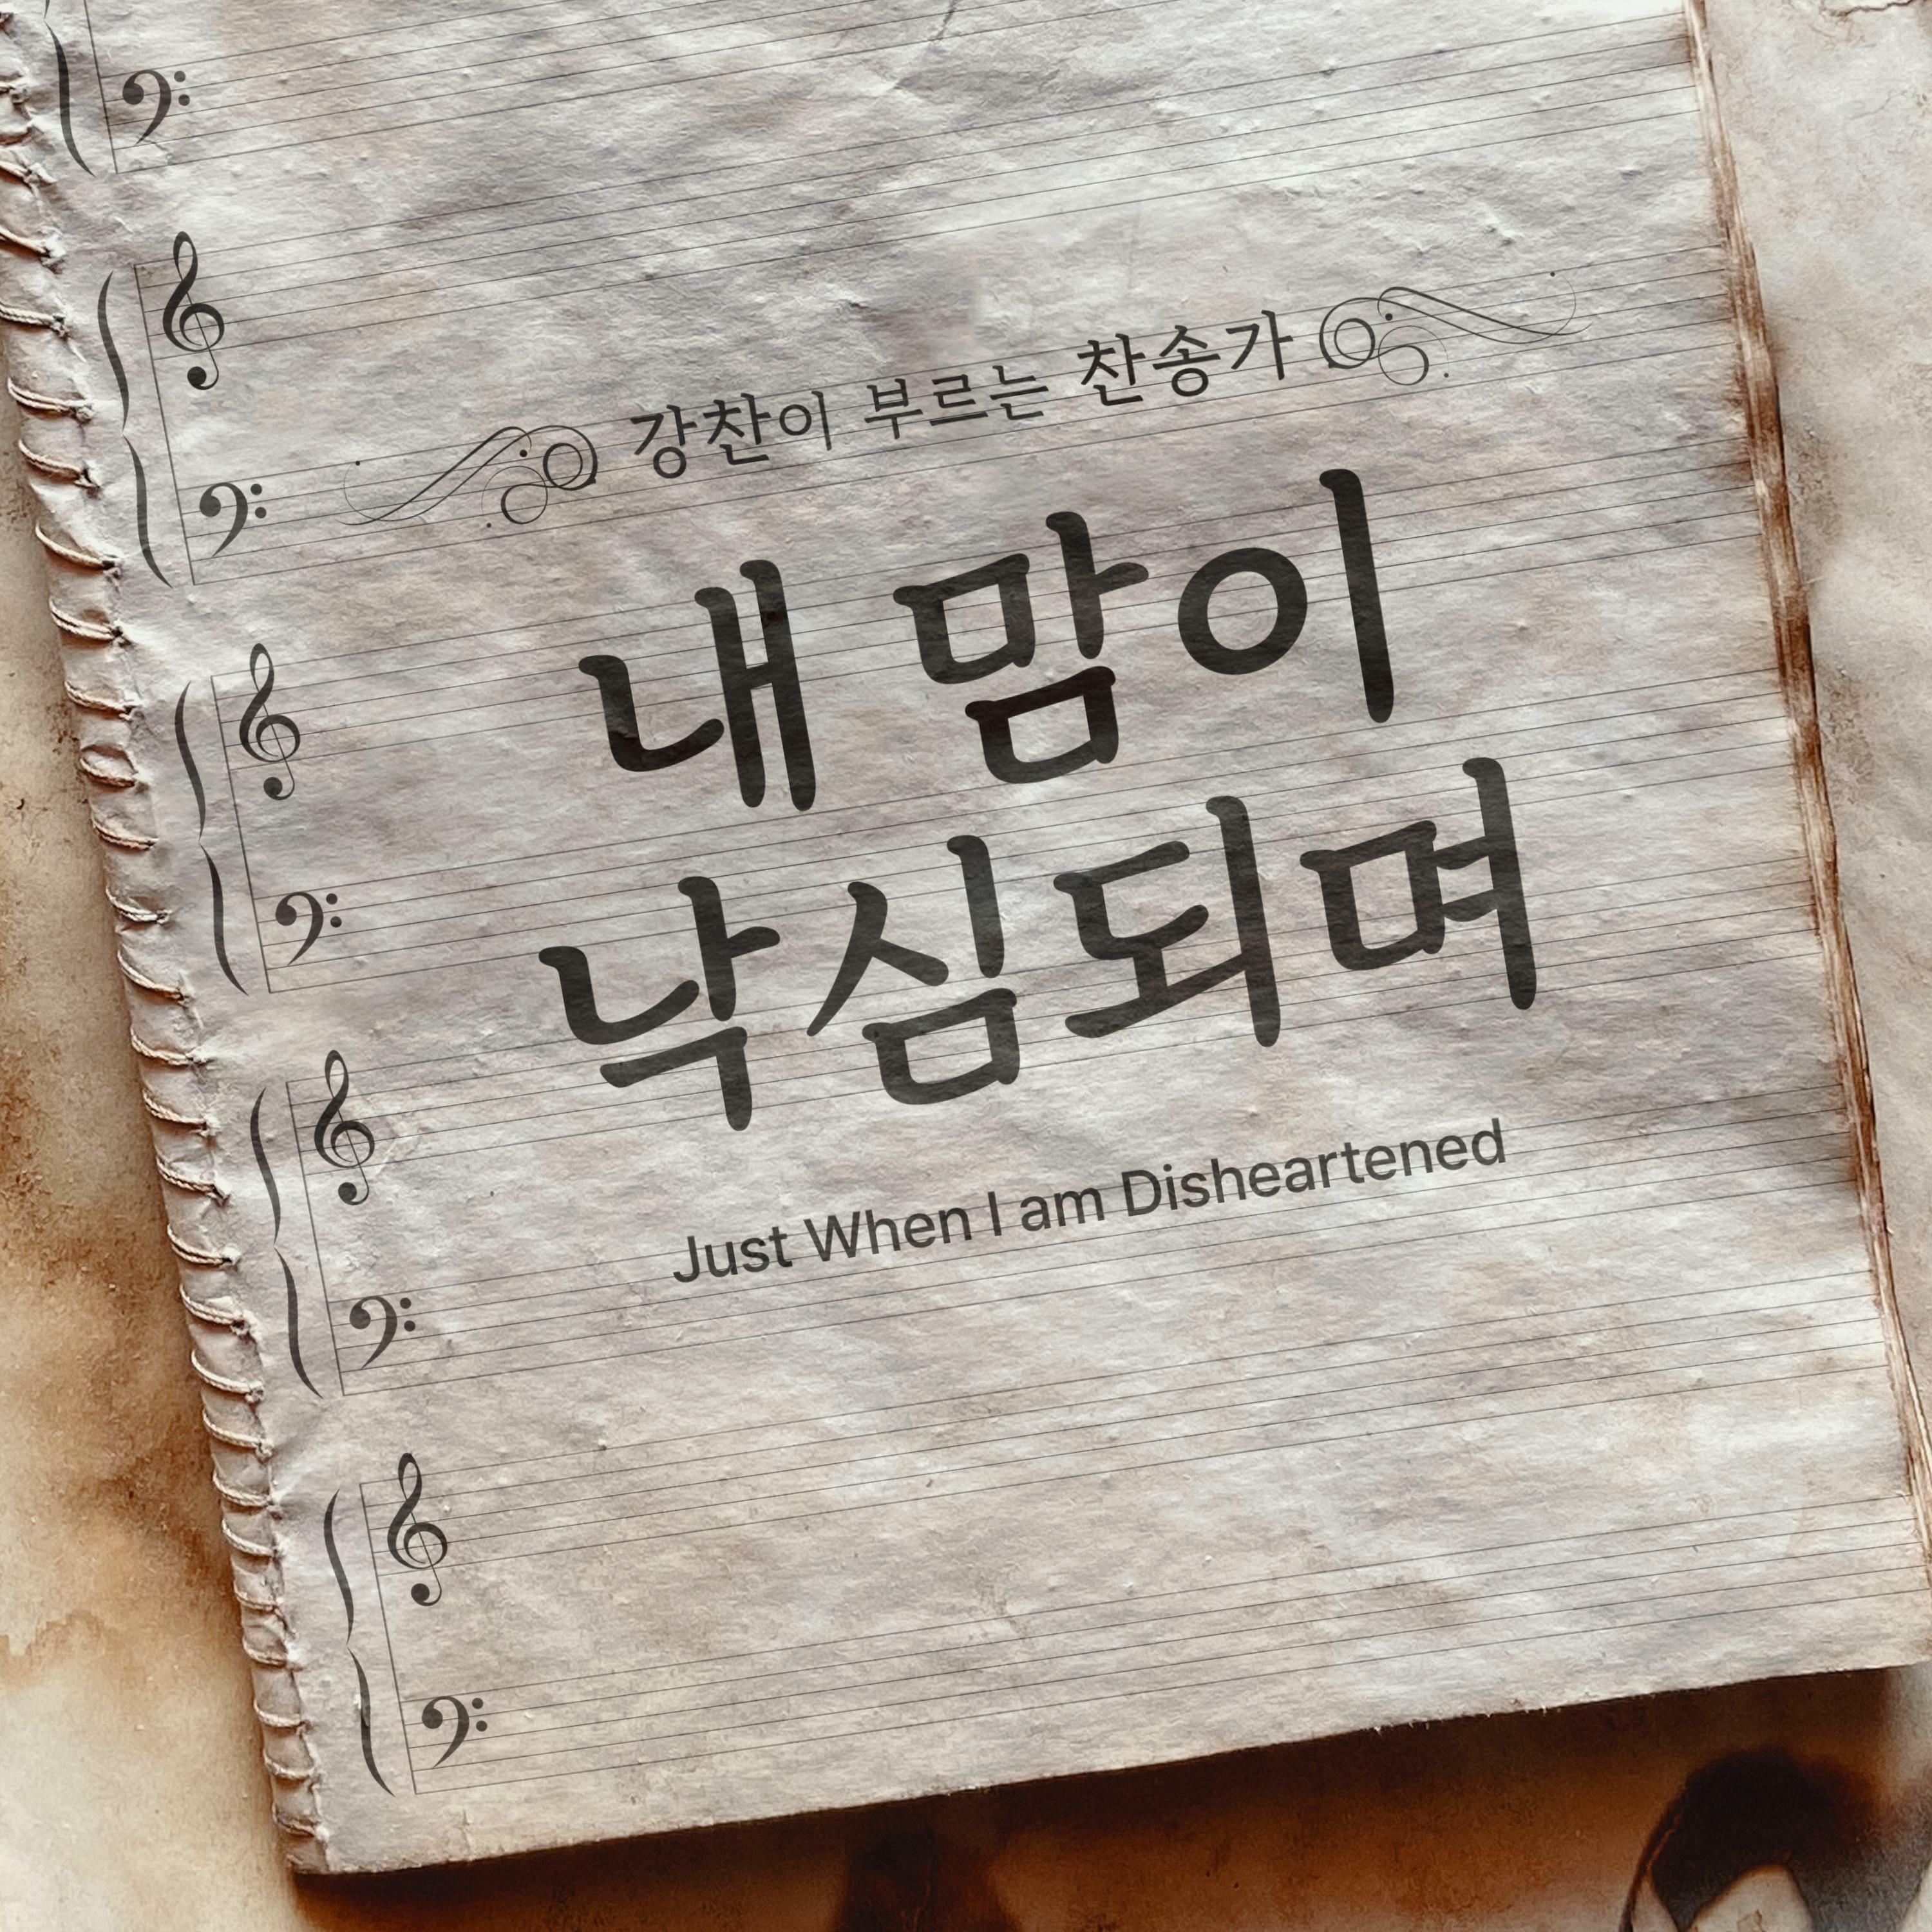 강찬이 부르는 찬송가
내 맘이
낙심되며
Just When I am Disheartened